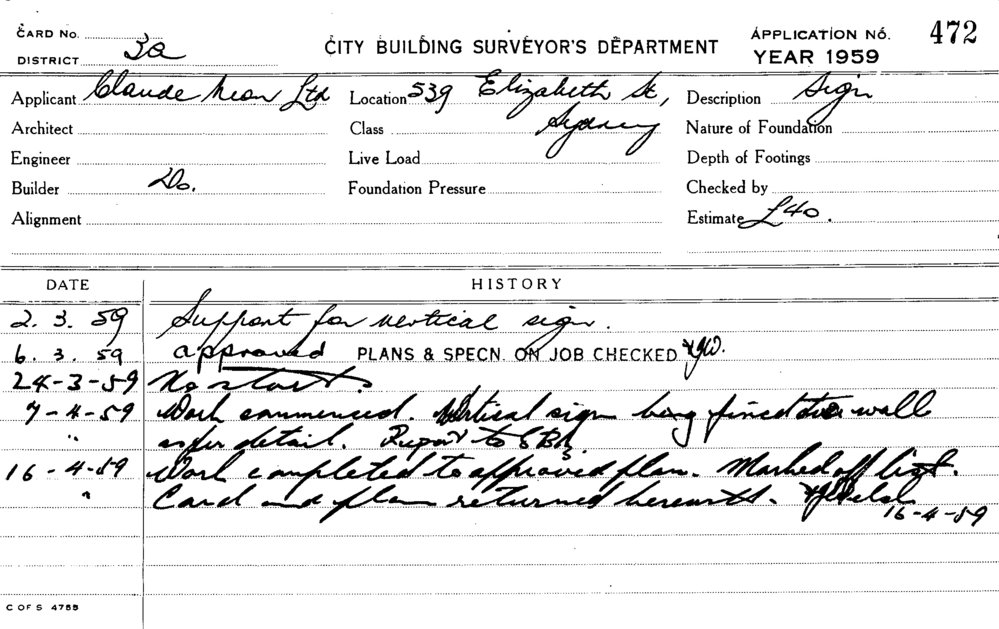 CARD No.
DISTRICT 3a
CITY BUILDING SURVEYOR'S DEPARTMENT
APPLICATION No. 472
YEAR 1959
Applicant Claude Neon Ltd
Location 539 Elizabeth St,
Description Sign
Architect
Class Sydney
Nature of Foundation
Engineer
Live Load
Depth of Footings
Builder Do.
Foundation Pressure
Checked by
Alignment
Estimate £40.
DATE HISTORY
2. 3. 59 Support for vertical sign.
6. 3. 59 approved PLANS & SPECN. ON JOB CHECKED
24-3-59 No start.
7-4-59 Work commenced. Vertical sign being to wall
" as per detail. Report to
16-4-59 Work completed to approved plan. Marked off list.
" Card and plan returned herewith.
16-4-59
C OF S 4755